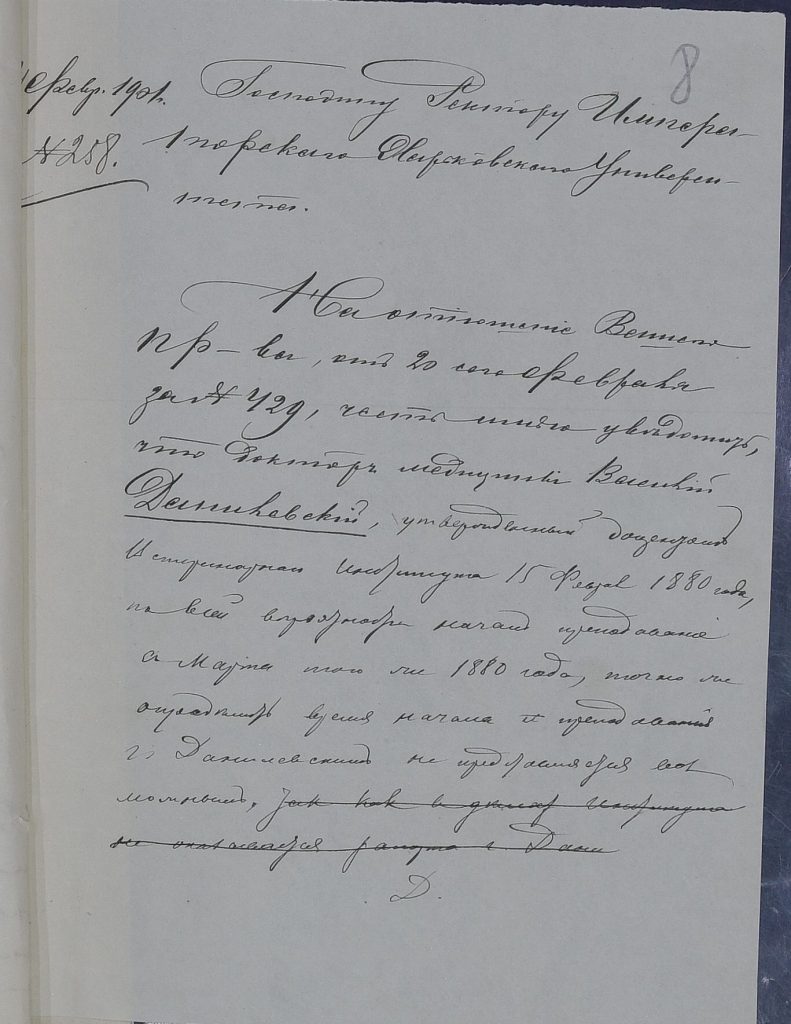 8
Февр. 1901 г.
№ 258.
Господину Ректору Импера-
торскаго Харьковскаго Университ-
тета.
На отношеніе Вашего
пр-ва, отъ 20 сего февраля
за № 429, честь имѣю увѣдомить,
что докторъ медицины Василій
Данилевскій, утвержденный доцентомъ
Ветеринарнаго Института 15 Февраля 1880 года,
по всей вѣроятности началъ преподаваніе
съ Марта того же 1880 года, точно же
опредѣлить время начала преподаванія
г. Данилевскимъ не представляется воз
можнымъ, такъ какъ въ дѣлахъ Института
не оказывается рапорта г. Дани
Д.